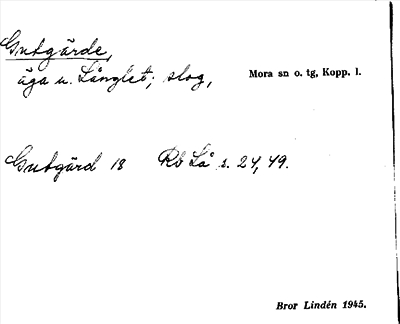 Gubgärde,
äga u. Långlet; slog, Mora sn o. tg, Kopp. l.
Gubgärd 18 Rb Lå s. 24, 49.
Bror Lindén 1945.